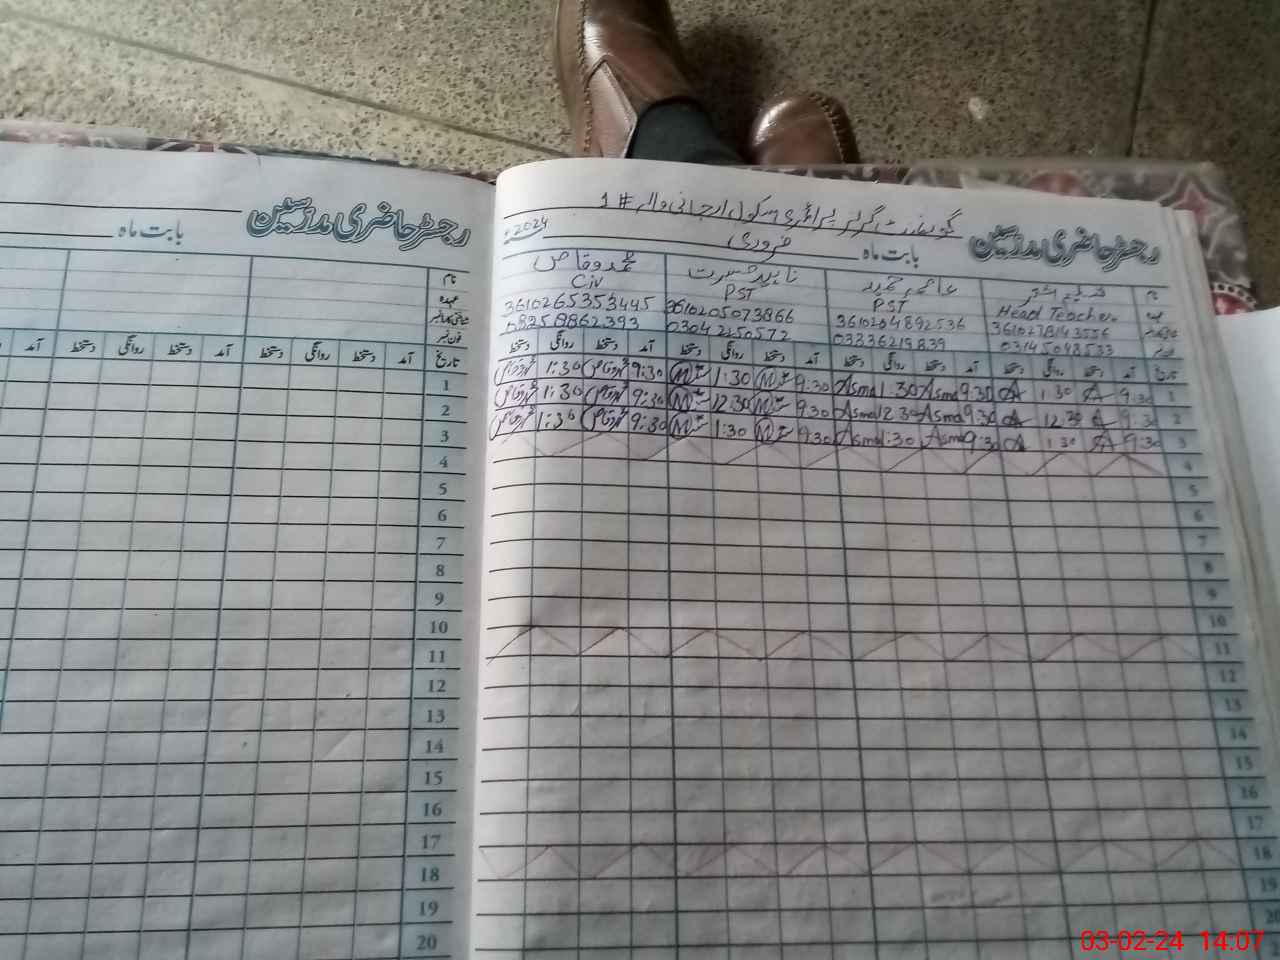 رجسٹر حاضری مدرسین
بابت ماہ
نام
عہدہ
شناختی کارڈ نمبر
فون نمبر
تاریخ آمد دستخط روانگی دستخط آمد دستخط روانگی دستخط آمد
1
2
3
4
5
6
7
8
9
10
11
12
13
14
15
16
17
18
19
20
گورنمنٹ گرلز پرائمری سکول ارجانی والہ #1
رجسٹر حاضری مدرسین
بابت ماہ فروری 2024ء
نام ناہید محمد وقاص
Head Teacher PST PST Civ
3610278143556 3610204892536 3610205073866 3610265353445
03145048533 03336219839 03042250572 03258862393
تاریخ آمد دستخط روانگی دستخط آمد دستخط روانگی دستخط آمد دستخط روانگی دستخط آمد دستخط روانگی دستخط
1 9:30 A 1:30 A 9:30 Asma 1:30 Asma 9:30 1:30 9:30 محمد وقاص 1:30 محمد وقاص
2 9:30 A 12:30 A 9:30 Asma 12:30 Asma 9:30 12:30 9:30 محمد وقاص 1:30 محمد وقاص
3 9:30 A 1:30 A 9:30 Asma 1:30 Asma 9:30 1:30 9:30 محمد وقاص 1:30 محمد وقاص
4
5
6
7
8
9
10
11
12
13
14
15
16
17
18
19
03-02-24 14:07